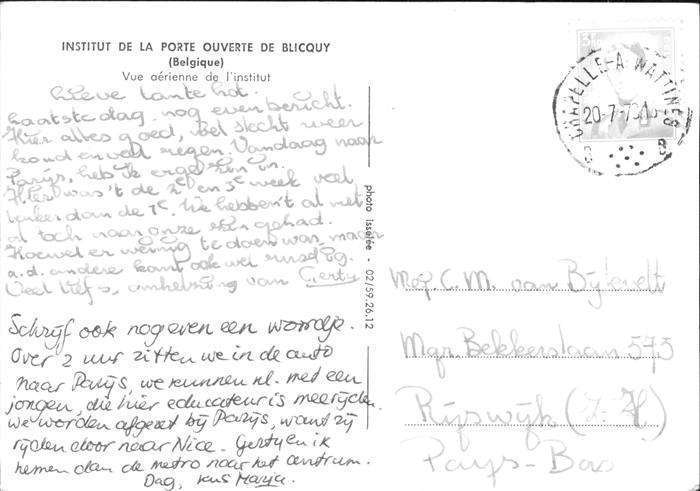 INSTITUT DE LA PORTE OUVERTE DE BLICQUY
(Belgique)
Vue aérienne de l'institut
Lieve tante
Laatste dag, nog even bericht.
Hier alles goed, wel slecht weer
koud en veel regen. Vandaag naar
Parijs, heb ik erge zin in.
Hier was 't de 2e en 3e week veel
leuker dan de 1e. We hebben't al met
al toch naar onze zin gehad.
Hoewel er weinig te doen was, maar
a.d. andere kant ook wel rustig.
Veel liefs, omhelzing van Gerty
Schrijf ook nog even een woordje.
Over 2 uur zitten we in de auto
naar Parijs, we kunnen nl. met een
jongen, die hier educateur is meerijden.
we worden afgezet bij Parijs, want zij
rijden door naar Nice. Gerty en ik
nemen dan de metro naar het centrum.
Dag, kus Marja.
photo Isselée - 02/59.26.12
CHAPELLE-A-WATTINES
20-7-70
B B
Mej. C. M. van Bijlevelt
Mgr. Bekkerslaan 573
Rijswijk (Z-H)
Pays-Bas